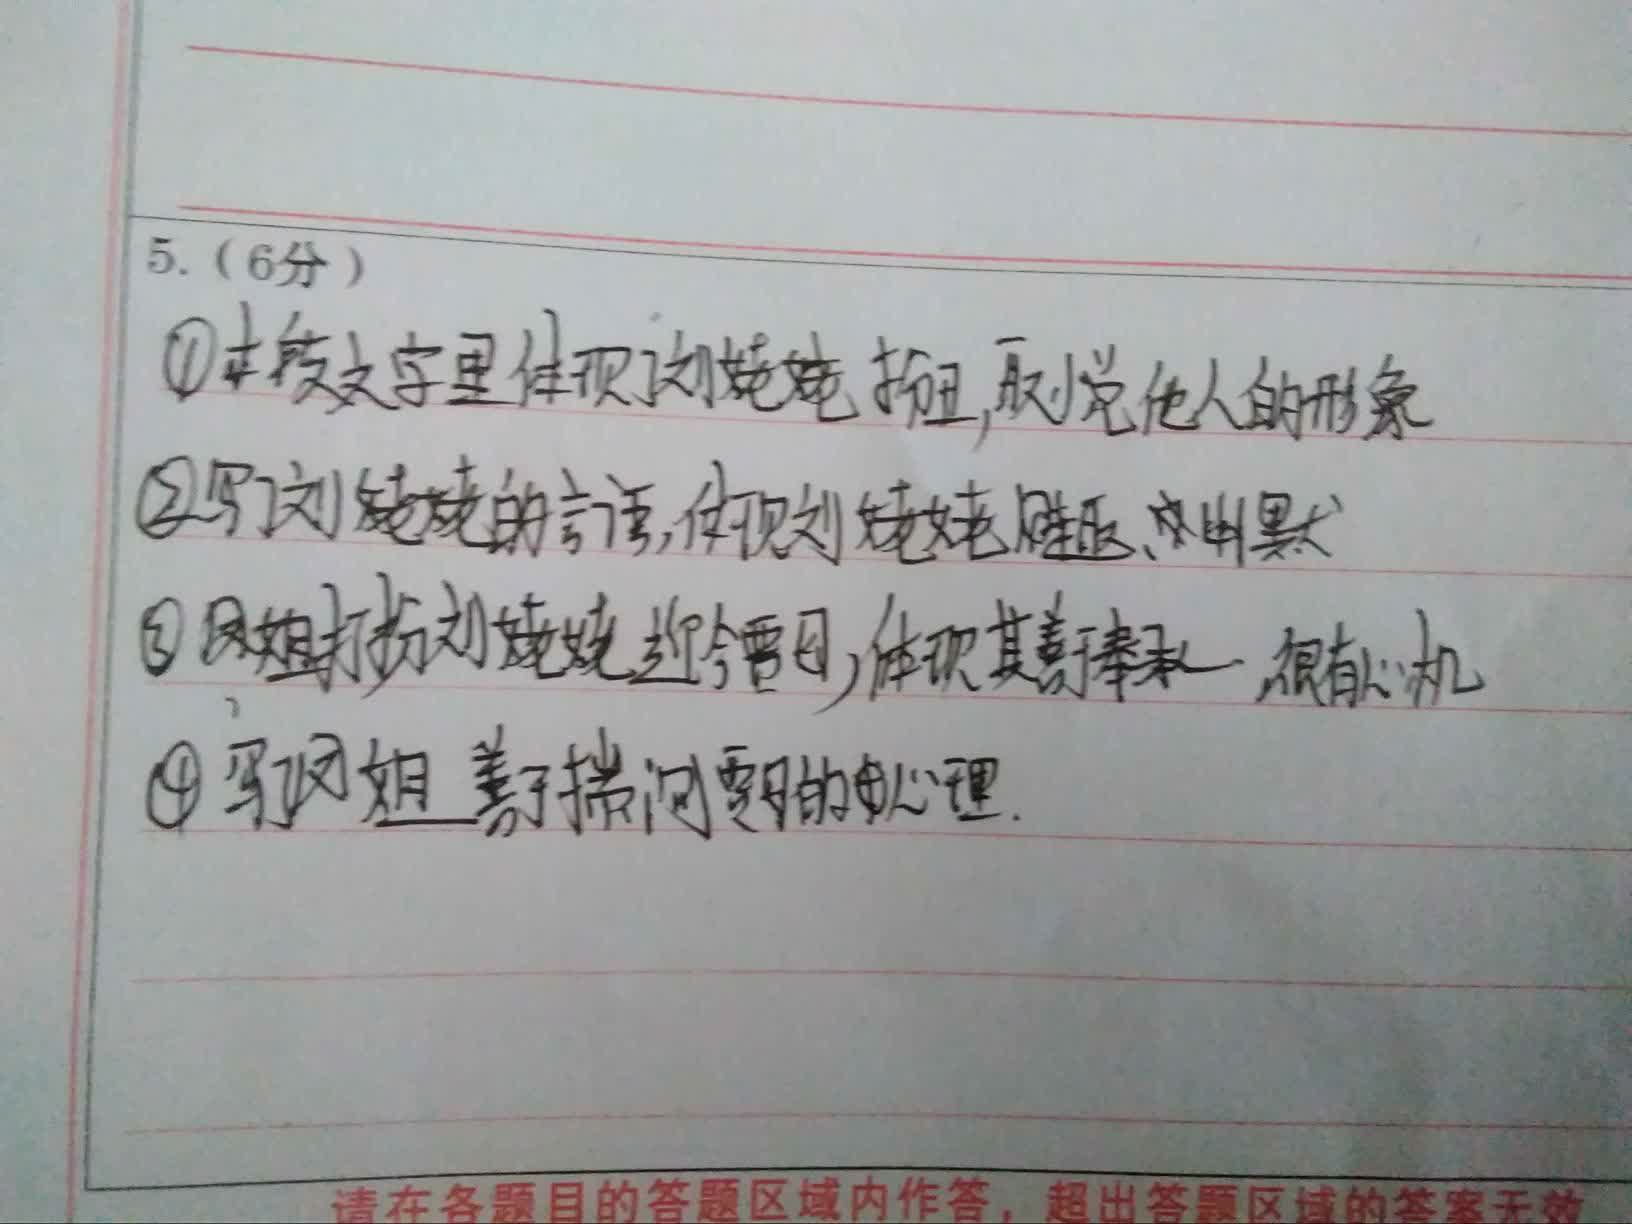 5.（6分）
①本段文字里体现了刘姥姥扮丑,取悦他人的形象
②写了刘姥姥的言语,体现刘姥姥 幽默
③凤姐打扮刘姥姥迎合贾母,体现其善于奉承,很有心机
④写了凤姐善于揣 贾母的心理.
请在各题目的答题区域内作答，超出答题区域的答案无效